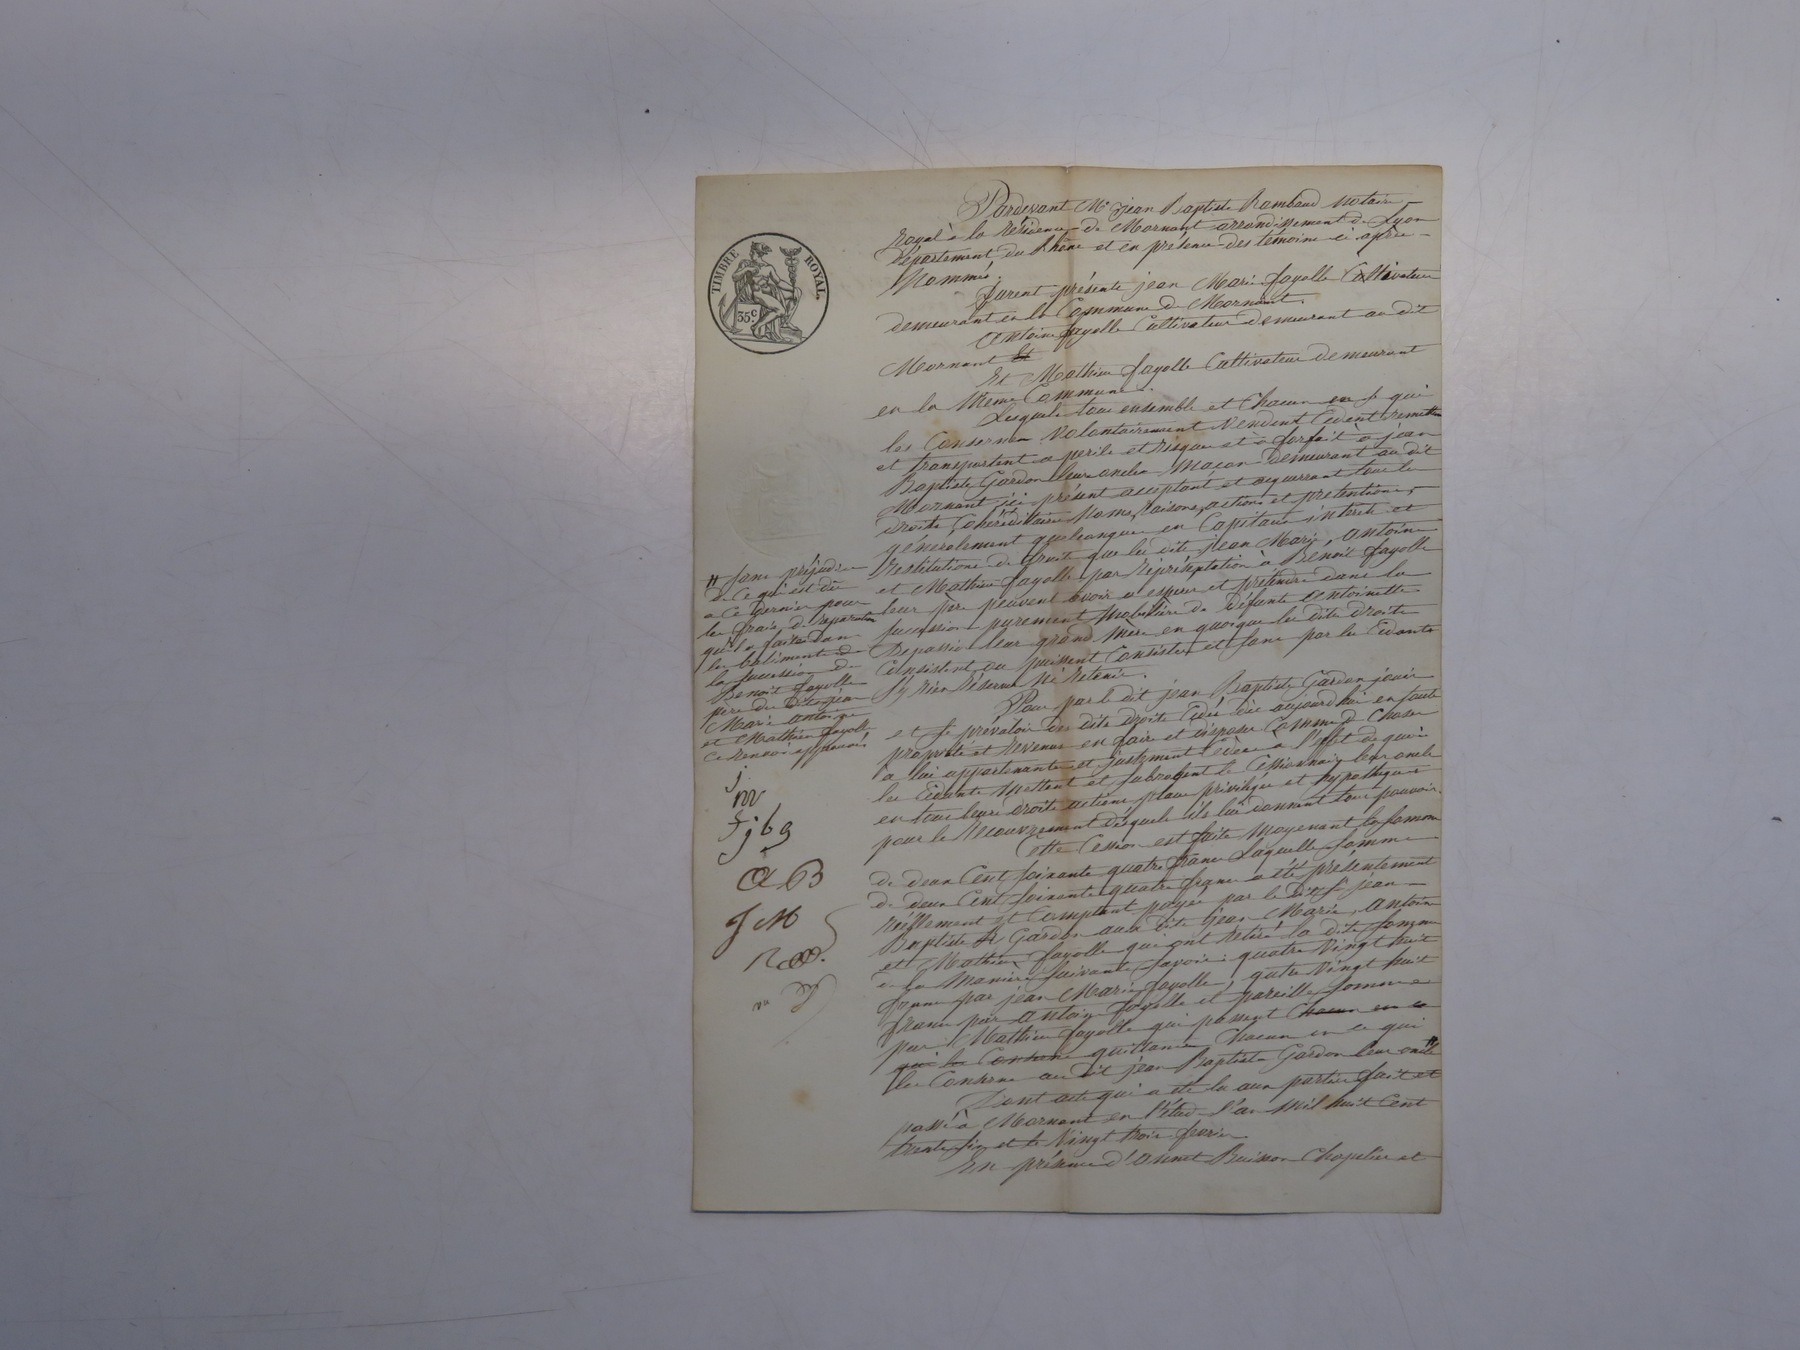 TIMBRE ROYAL
35c
Pardevant Me jean Baptiste Rambaud notaire
royal à la résidence de Mornant arrondissement de Lyon
département du Rhône et en présence des témoins ci après
Nommés.
furent présents jean Marie fayolle Cultivateur
demeurant en la Commune de Mornant.
Antoine fayolle Cultivateur demeurant au dit
Mornant
Et Mathieu fayolle Cultivateur demeurant
en la Même Commune.
Lesquels tous ensemble et chacun en ce qui
les Conserne Volontairement Vendent Cèdent remettent
et transportent a perils et risques et à forfait à jean
Baptiste Gardon leur oncle Maçon demeurant au dit
Mornant ici présent acceptant et acquerrant tous les
droits Cohéréditaires Noms, raisons, actions et prétentions,
généralement quelconques en Capitaux intérêts et
restitutions de fruits que les dits jean Marie, Antoine
et Mathieu fayolle par Représentation à Benoit fayolle
leur père peuvent avoir a esperer et prétendre dans la
succession purement Mobilière de défunte Antoinette
Trepassio leur grand Mère en quoique les dits droits
Consistent ou puissent Consister et sans par les Cédants
s'y rien réserver ni retenir.
Pour par le dit jean Baptiste Gardon jouir
et se prévaloir des dits droits Cédés dès aujourd'hui en toute
propriété et revenus en faire et disposer Comme de Chose
a lui appartenante et justement cédée a l'effet de quoi
les Cédants Mettent et subrogent le Cessionnaire leur oncle
en tous leurs droits actions place privilèges et hypothèques
pour le recouvrement desquels ils lui donnent tout pouvoir.
Cette Cession est faite Moyenant la somme
de deux Cent soixante quatre francs Laquelle somme
de deux Cent soixante quatre francs a été présentement
réellement et Comptant payée par le dit jean
Baptiste Gardon aux dits jean Marie, Antoine
et Mathieu fayolle qui ont retiré la dite somme
de la Manière suivante savoir: quatre Vingt huit
francs par jean Marie fayolle, quatre Vingt huit
francs par Antoine fayolle et pareille somme
par Mathieu fayolle qui passent Chacun en ce
qui les Conserne quittance Chacun en ce qui
les Conserne au dit jean Baptiste Gardon leur oncle #
Dont acte qui a été lu aux parties fait et
passé à Mornant en l'étude l'an Mil huit Cent
trente six et le Vingt trois
En présence d'Annet Buisson Chapelier et
# sans préjudice
de ce qui est dû
a ce dernier pour
les frais de reparation
qu'il a faits dans
les batiments de
la succession de
Benoit fayolle
père des dits jean
Marie Antoine
et Mathieu fayolle
ce renvoi approuvé
j
m
F j b g
A B
J M